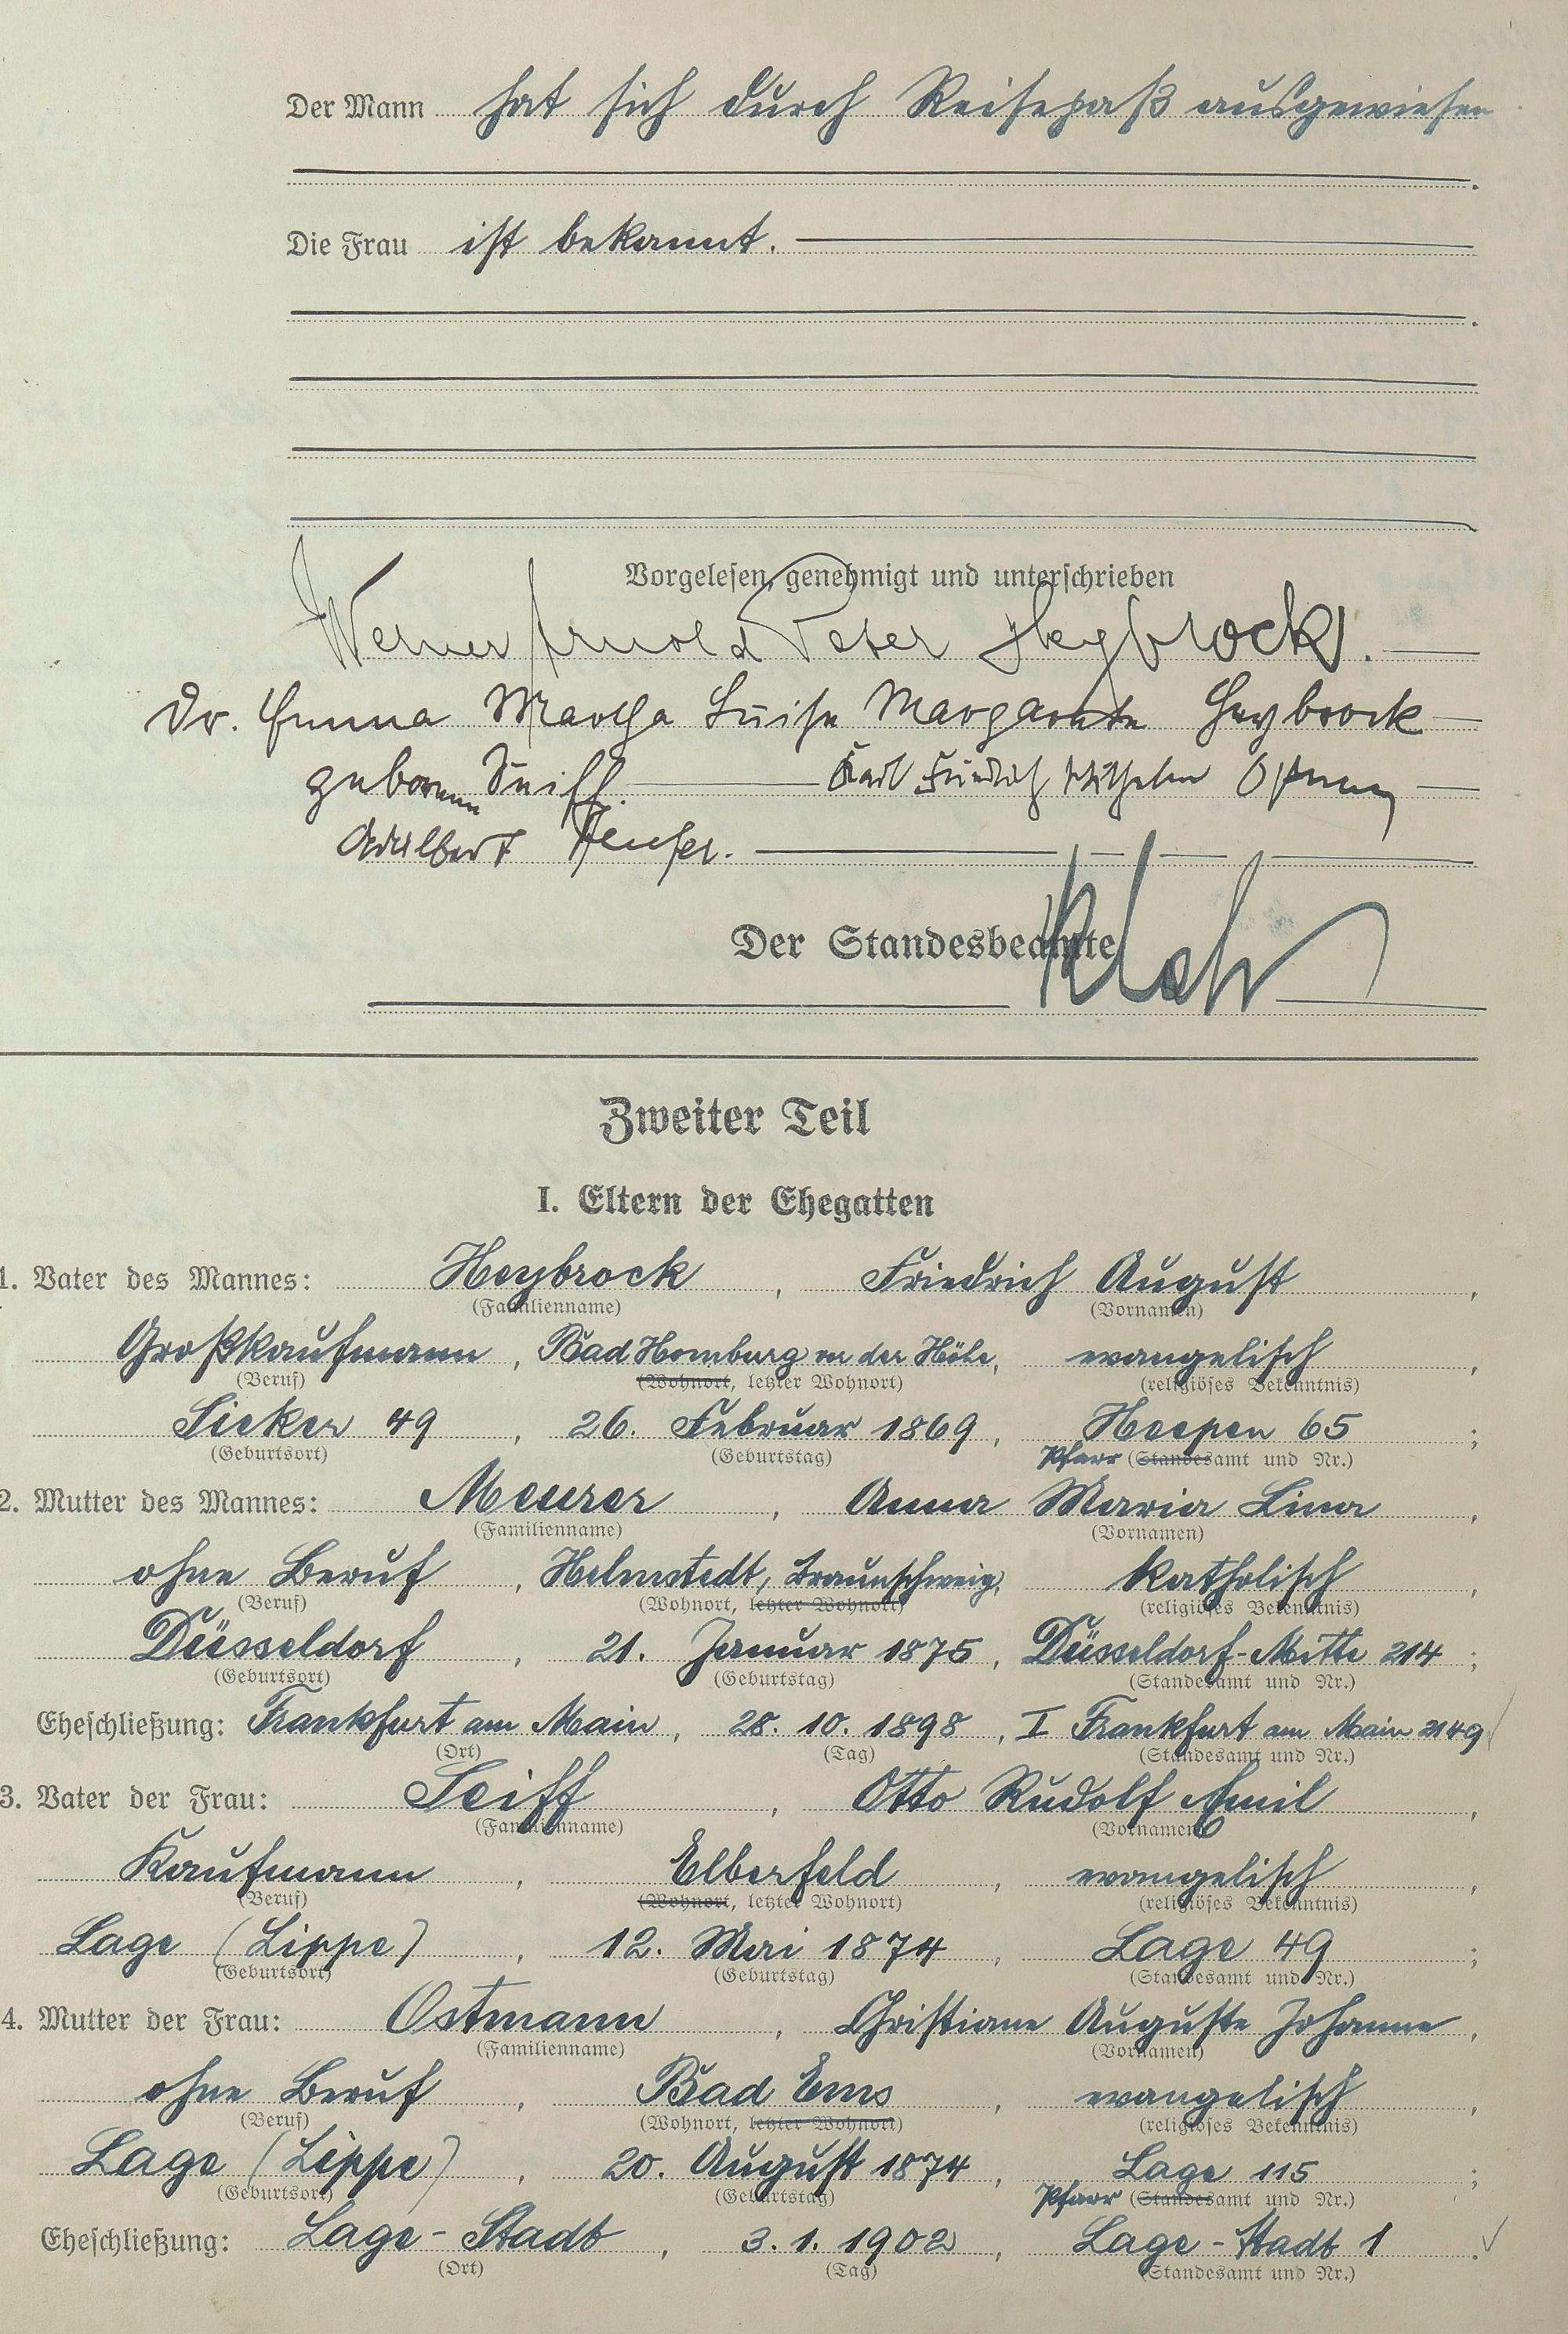 Der Mann hat sich durch Reisepaß ausgewiesen
Die Frau ist bekannt.
Vorgelesen, genehmigt und unterschrieben
Werner Arnold Peter Heybrock.
Dr. Emma Martha Luise Margarete Heybrock
geborene Seiff. Karl Friedrich Wilhelm
Adalbert
Der Standesbeamte
Zweiter Teil
I. Eltern der Ehegatten
1. Vater des Mannes: Heybrock, Friedrich August,
(Familienname) (Vornamen)
Großkaufmann, Bad Homburg vor der Höhe, evangelisch,
(Beruf) (Wohnort, letzter Wohnort) (religiöses Bekenntnis)
Sieker 49, 26. Februar 1869, Heepen 65;
(Geburtsort) (Geburtstag) Pfarr (Standesamt und Nr.)
2. Mutter des Mannes: Meurer, Anna Maria Lina,
(Familienname) (Vornamen)
ohne Beruf, Helmstedt, Braunschweig, katholisch,
(Beruf) (Wohnort, letzter Wohnort) (religiöses Bekenntnis)
Düsseldorf, 21. Januar 1875, Düsseldorf-Mitte 214;
(Geburtsort) (Geburtstag) (Standesamt und Nr.)
Eheschließung: Frankfurt am Main, 28. 10. 1898, I Frankfurt am Main 2149
(Ort) (Tag) (Standesamt und Nr.)
3. Vater der Frau: Seiff, Otto Rudolf Emil,
(Familienname) (Vornamen)
Kaufmann, Elberfeld, evangelisch,
(Beruf) (Wohnort, letzter Wohnort) (religiöses Bekenntnis)
Lage (Lippe), 12. Mai 1874, Lage 49;
(Geburtsort) (Geburtstag) (Standesamt und Nr.)
4. Mutter der Frau: Ostmann, Christiane Auguste Johanne,
(Familienname) (Vornamen)
ohne Beruf, Bad Ems, evangelisch,
(Beruf) (Wohnort, letzter Wohnort) (religiöses Bekenntnis)
Lage (Lippe), 20. August 1874, Lage 115;
(Geburtsort) (Geburtstag) Pfarr (Standesamt und Nr.)
Eheschließung: Lage-Stadt, 3. 1. 1902, Lage-Stadt 1.
(Ort) (Tag) (Standesamt und Nr.)